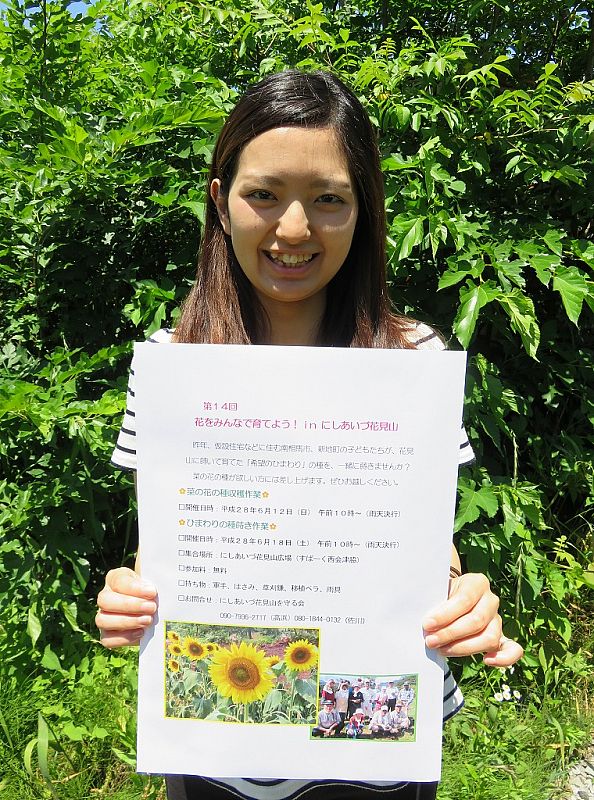 第14回
花をみんなで育てよう！ in にしあいづ花見山
昨年、仮設住宅などに住む南相馬市、新地町の子どもたちが、花見
山に蒔いて育てた「希望のひまわり」の種を、一緒に蒔きませんか？
菜の花の種が欲しい方には差し上げます。ぜひお越しください。
菜の花の種収穫作業
□開催日時：平成28年6月12日（日） 午前10時～（雨天決行）
ひまわりの種蒔き作業
□開催日時：平成28年6月18日（土） 午前10時～（雨天決行）
□集合場所：にしあいづ花見山広場（すぱーく西会津脇）
□参加料：無料
□持ち物：軍手、はさみ、草刈鎌、移植ベラ、雨具
□お問合せ：にしあいづ花見山を守る会
090-7936-2717（高浜）080-1844-0132（佐川）